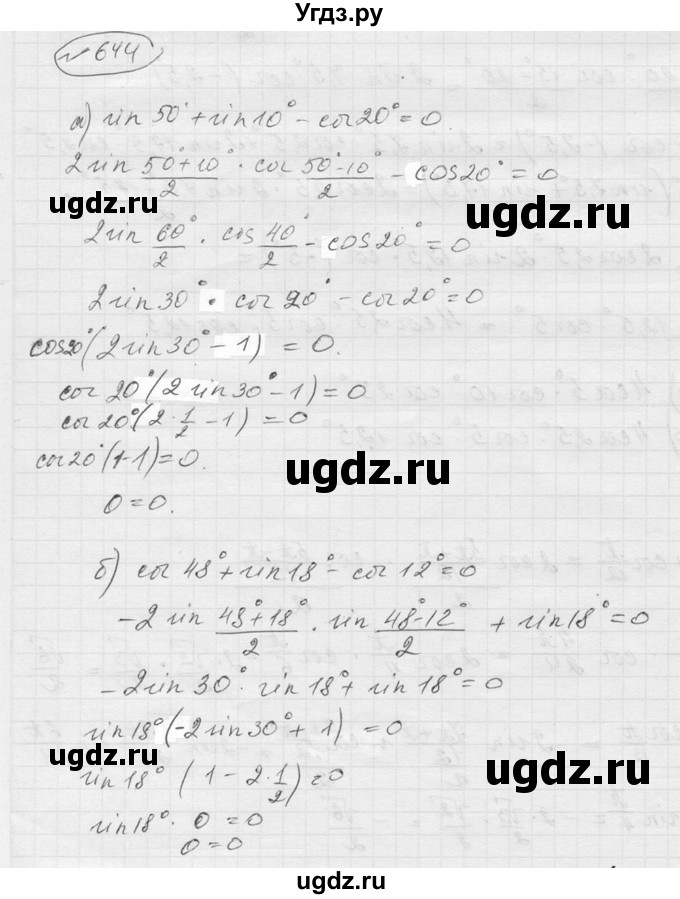 Угдз.ру
№ 644
а) sin 50° + sin 10° - cos 20° = 0
2 sin (50+10°)/2 · cos (50°-10°)/2 - cos 20° = 0
ugdz.ru
ugdz.ru
2 sin 60°/2 · cos 40°/2 - cos 20° = 0
2 sin 30° · cos 20° - cos 20° = 0
cos 20° (2 sin 30° - 1) = 0.
cos 20° (2 sin 30° - 1) = 0
cos 20° (2 · 1/2 - 1) = 0
cos 20° (1-1) = 0.
ugdz.ru
0 = 0.
б) cos 48° + sin 18° - cos 12° = 0
-2 sin (48°+18°)/2 · sin (48°-12°)/2 + sin 18° = 0
ugdz.ru
-2 sin 30° · sin 18° + sin 18° = 0
sin 18° (-2 sin 30° + 1) = 0
ugdz.ru
sin 18° (1 - 2 · 1/2) = 0
ugdz.ru
sin 18° · 0 = 0
0 = 0
ugdz.ru